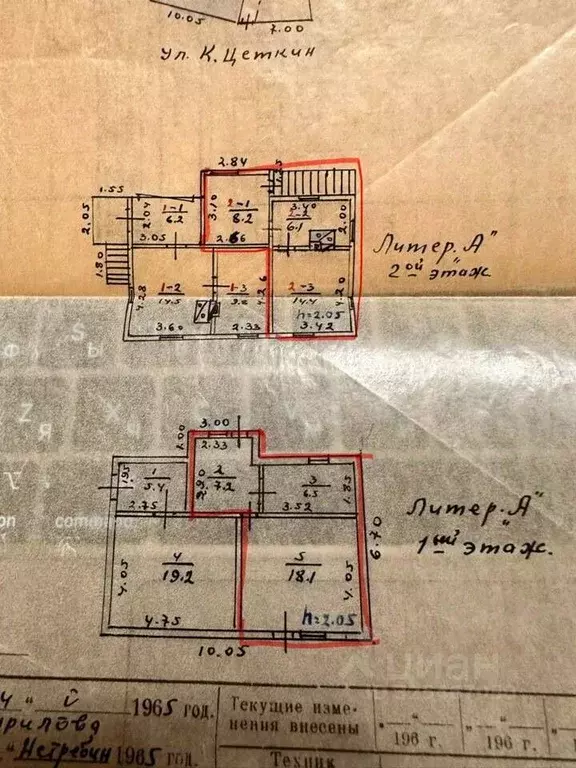 10.05
7.00
Ул. К. Цеткин
2.84
1.55
2.05
2.04
1-1
6.2
3.05
3.10
2-1
8.2
2.66
3.40
2-2
6.1
2.00
1.80
4.28
1-2
14.5
3.60
1-3
2.33
4.26
2-3
14.4
h=2.05
3.42
4.20
Литер „А"
2ой этаж
3.00
1.00
2.33
1.95
1
5.4
2.75
2
7.2
3
6.5
3.52
1.85
4
19.2
4.05
4.75
5
18.1
4.05
h=2.05
6.70
10.05
Литер „А"
1ый этаж.
циан
1965 год.
Текущие изме-
нения внесены
„ "
196 г.
„ "
196 г.
„Нетребин 1965 год.
Техник